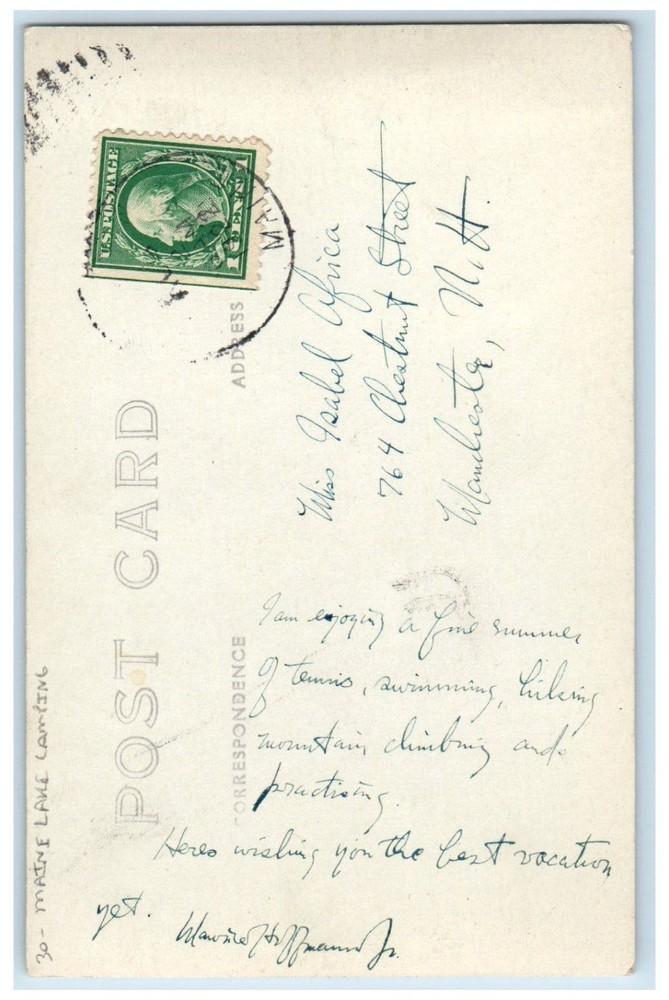 U.S. POSTAGE
1 CENT 1
MAINE
POST CARD
ADDRESS
Miss Isabel Africa
764 Chestnut Street
Manchester, N.H.
CORRESPONDENCE
I am enjoying a fine summer
of tennis, swimming, hiking
mountain climbing and
practising.
Heres wishing you the best vacation
yet.
Maurice Hoffmann Jr.
30- MAINE LAKE CAMPING